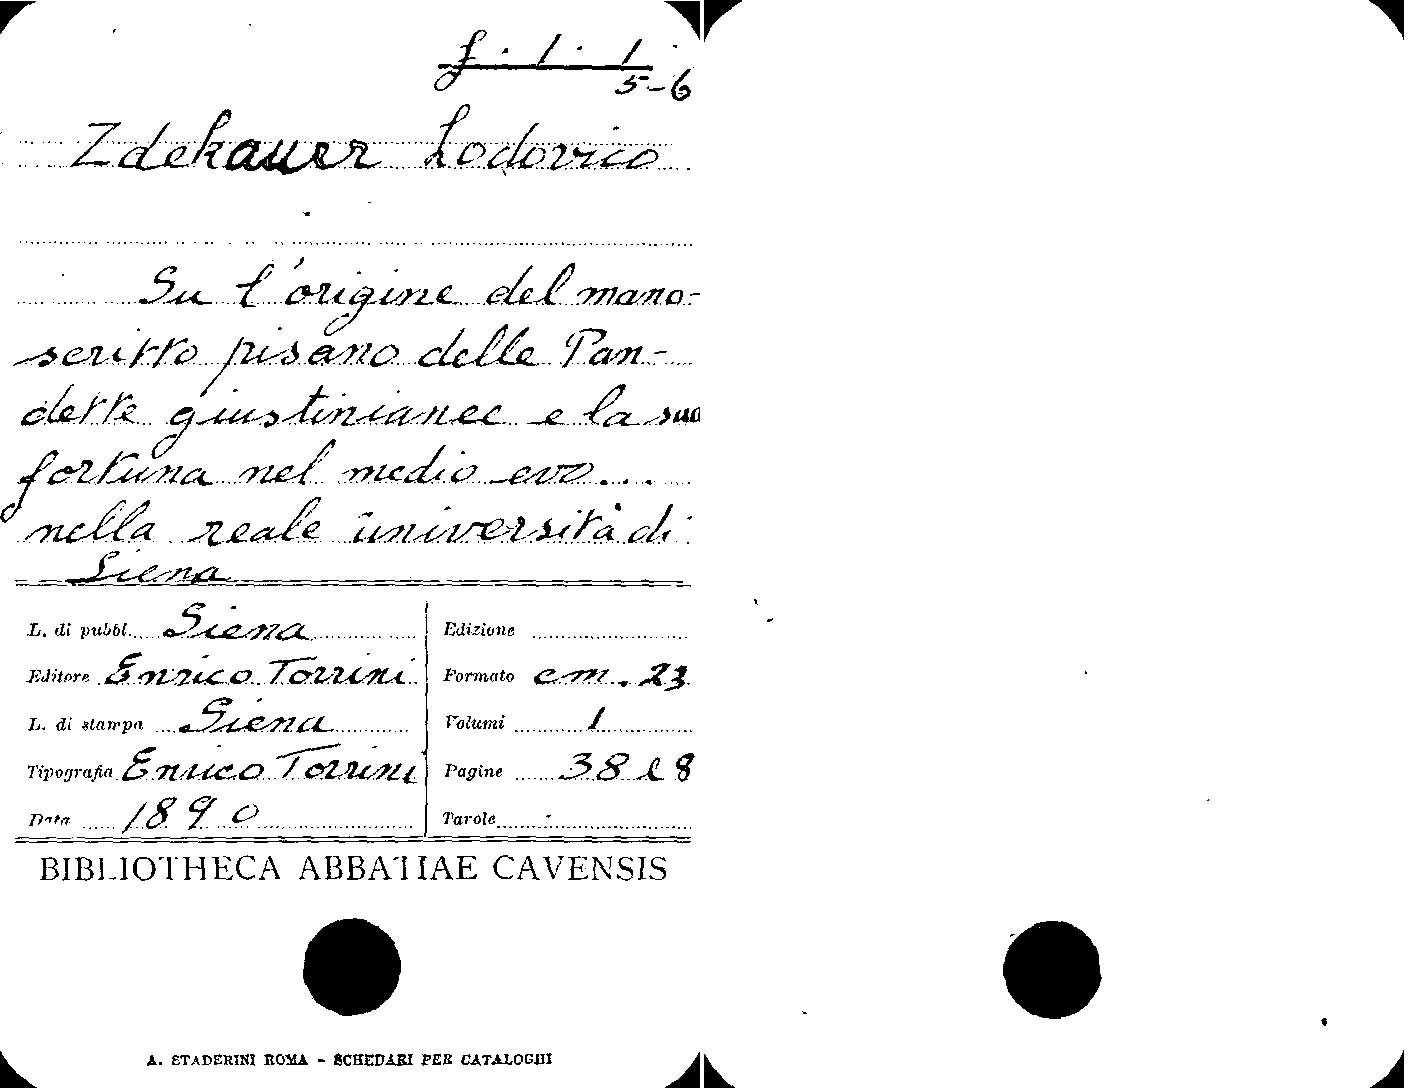 f. 1. 1.
5-6
Zdekauer Lodovico
Su l'origine del mano-
scritto pisano delle Pan-
dette giustinianee e la sua
fortuna nel medio evo...
nella reale università di
Siena
L. di pubbl. Siena
Edizione
Editore Enrico Torrini
Formato cm. 23
L. di stampa Siena
Volumi 1
Tipografia Enrico Torrini
Pagine 38 e 8
Data 1890
Tavole
BIBLIOTHECA ABBATIAE CAVENSIS
A. STADERINI ROMA - SCHEDARI PER CATALOGHI